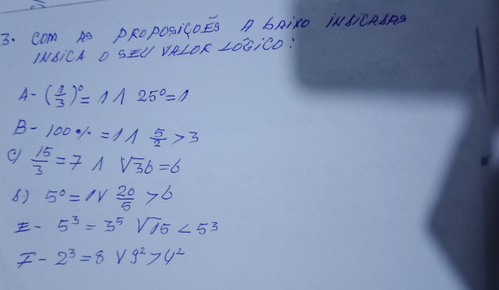 3. COM AS PROPOSIÇÕES A BAIXO INDICADAS
INDICA O SEU VALOR LÓGICO:
A- (1/3)⁰ = 1 ∧ 25⁰ = 1
B- 100% = 1 ∧ 5/2 > 3
C) 15/3 = 7 ∧ √36 = 6
D) 5⁰ = 1 ∨ 20/5 > 6
E- 5³ = 3⁵ √15 < 5³
F- 2³ = 8 ∨ 9² > 4²